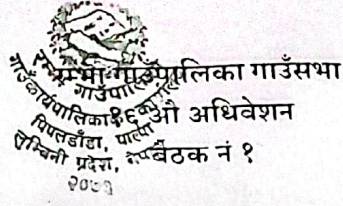 रम्भा गाउँपालिका गाउँसभा
१६ औ अधिवेशन
बैठक नं १
रम्भा गाउँपालिका
गाउँ कार्यपालिकाको
पिपलडाँडा, पाल्पा
लुम्बिनी प्रदेश,
२०७३